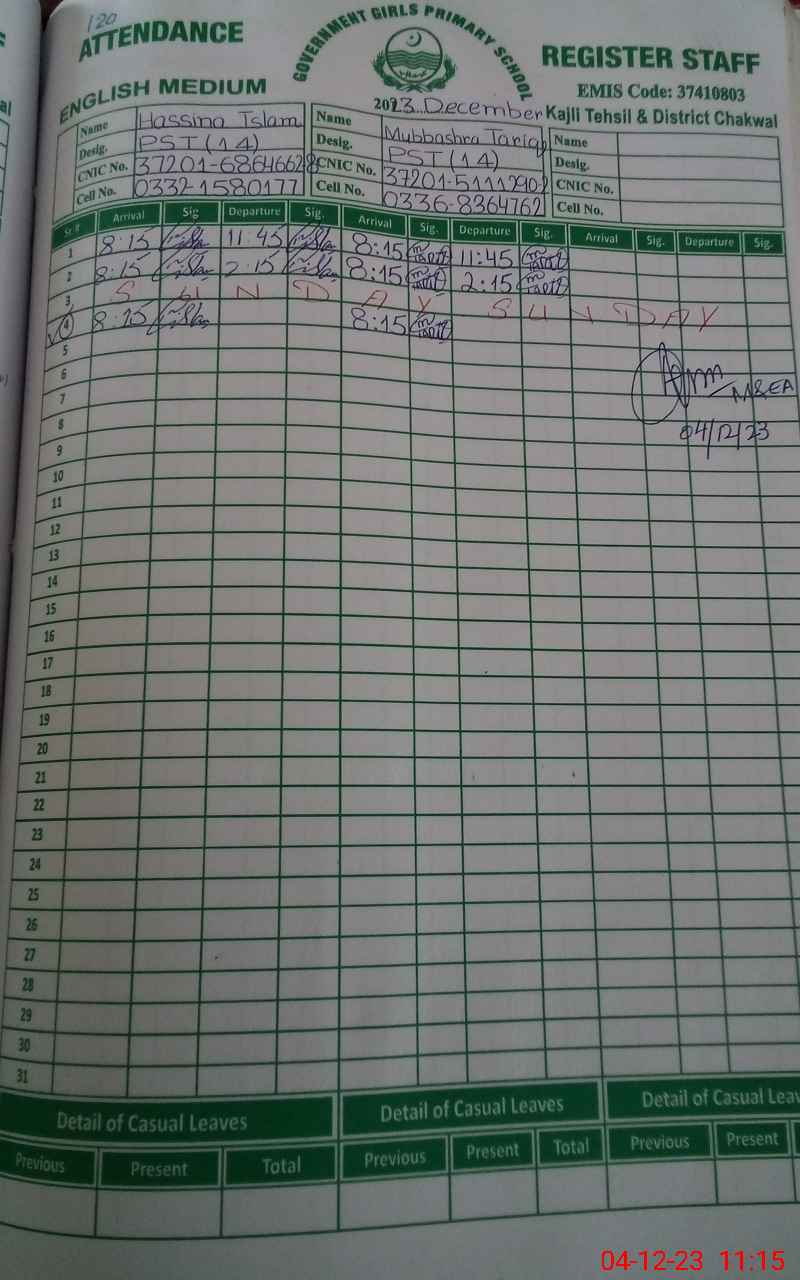 120
ATTENDANCE
GOVERNMENT GIRLS PRIMARY SCHOOL
REGISTER STAFF
ENGLISH MEDIUM
EMIS Code: 37410803
2023 December
Kajli Tehsil & District Chakwal
Name Hassina Islam Name Mubbashra Tariq Name
Desig. PST (14) Desig. PST (14) Desig.
CNIC No. 37201-6864662-8 CNIC No. 37201-5111290-2 CNIC No.
Cell No. 0332-1580177 Cell No. 0336-8364762 Cell No.
Sr.# Arrival Sig. Departure Sig. Arrival Sig. Departure Sig. Arrival Sig. Departure Sig.
1 8:15 11:45 8:15 11:45
2 8:15 2:15 8:15 2:15
3 SUNDAY SUNDAY
4 8:15 8:15
5
6
M&EA
7
8
04/12/23
9
10
11
12
13
14
15
16
17
18
19
20
21
22
23
24
25
26
27
28
29
30
31
Detail of Casual Leaves Detail of Casual Leaves Detail of Casual Leav
Previous Present Total Previous Present Total Previous Present
04-12-23 11:15